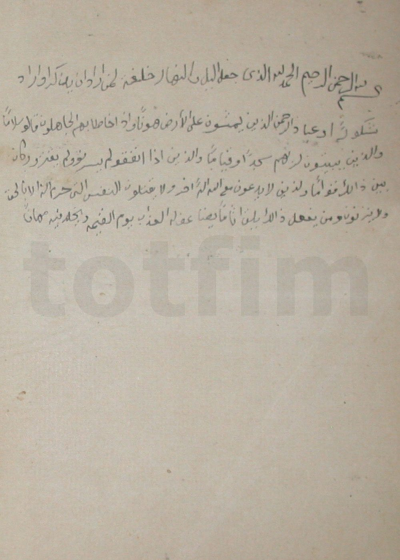 بسم الله الرحمن الرحيم الحمد لله الذى جعل الليل والنهار خلفة لمن اراد ان يذكر او اراد
شكورا وعباد الرحمن الذين يمشون على الأرض هونا واذا خاطبهم الجاهلون قالوا سلاما
والذين يبيتون لربهم سجدا وقياما والذين اذا انفقوا لم يسرفوا ولم يقتروا وكان
بين ذالك قواما والذين لا يدعون مع الله الها آخر ولا يقتلون النفس التى حرم الله الا بالحق
ولا يزنون ومن يفعل ذالك يلق اثاما يضاعف له العذاب يوم القيمة ويخلد فيه مهانا
totfim